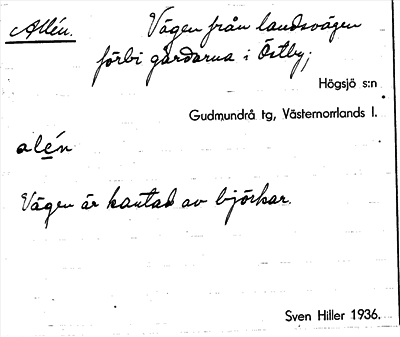 Allén.
Vägen från landsvägen
förbi gårdarna i Östby;
Högsjö s:n
Gudmundrå tg, Västernorrlands l.
alén
Vägen är kantad av björkar.
Sven Hiller 1936.